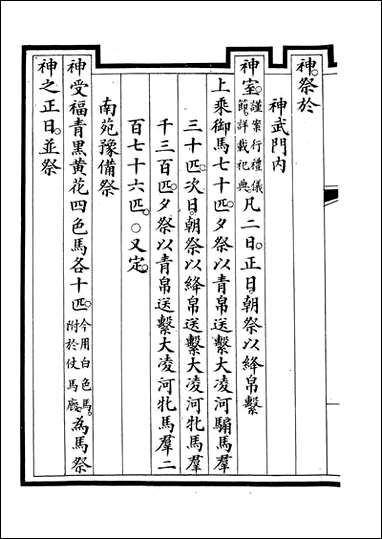 神祭於
神武門內
神室謹案行禮儀節詳載祀典凡二日正日朝祭以絳帛繫
上乘御馬七十匹夕祭以青帛送繫大凌河騸馬羣
三十匹次日朝祭以絳帛送繫大凌河牝馬羣
千三百匹夕祭以青帛送繫大凌河牝馬羣二
百七十六匹○又定
南苑豫備祭
神受福青黑黃花四色馬各十匹今用白色馬附於仗馬廠為馬祭
神之正日並祭